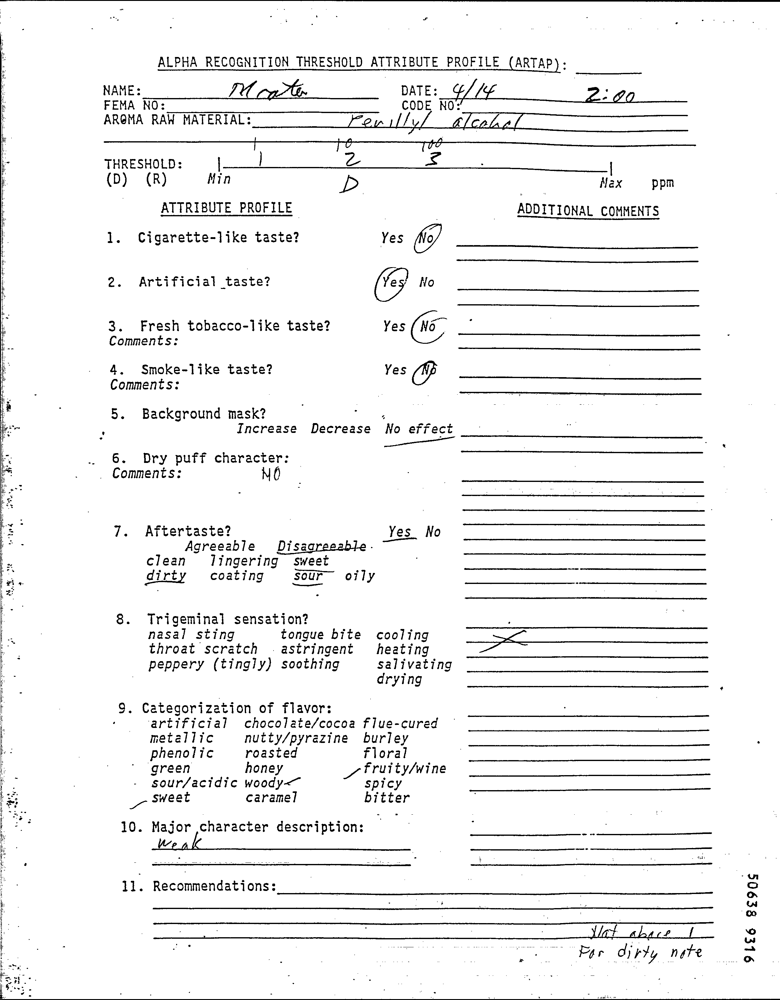 ALPHA RECOGNITION THRESHOLD ATTRIBUTE PROFILE (ARTAP):
NAME: DATE: 4/14 2:00
FEMA NO: CODE NO:
AROMA RAW MATERIAL: alcohol
1 10 100
THRESHOLD: 1 2 3
(D) (R) Min D Max ppm
ATTRIBUTE PROFILE ADDITIONAL COMMENTS
1. Cigarette-like taste? Yes No
2. Artificial taste? Yes No
3. Fresh tobacco-like taste? Yes No
Comments:
4. Smoke-like taste? Yes No
Comments:
5. Background mask?
Increase Decrease No effect
6. Dry puff character:
Comments: NO
7. Aftertaste? Yes No
Agreeable Disagreeable
clean lingering sweet
dirty coating sour oily
8. Trigeminal sensation?
nasal sting tongue bite cooling
throat scratch astringent heating
peppery (tingly) soothing salivating
drying
9. Categorization of flavor:
artificial chocolate/cocoa flue-cured
metallic nutty/pyrazine burley
phenolic roasted floral
green honey fruity/wine
sour/acidic woody spicy
sweet caramel bitter
10. Major character description:
Weak
11. Recommendations:
Not above 1
For dirty note
50638 9316